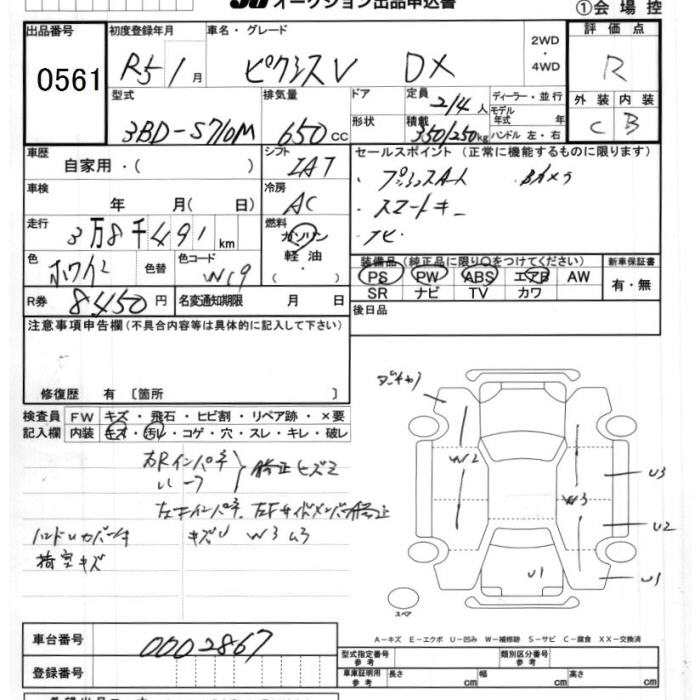 オークション出品申込書
①会場控
出品番号
0561
初度登録年月
R5 1月
車名・グレード
ピクシスV DX
2WD
・
4WD
評価点
R
型式
3BD-S710M
排気量
650cc
ドア
形状
定員
2/4人
積載
350/250kg
ディーラー・並行
モデル
年式 年
ハンドル 左・右
外装 内装
C B
車歴
自家用・( )
シフト
IAT
セールスポイント(正常に機能するものに限ります)
・プッシュスタート ・Bカメラ
・スマートキー
・ナビ
車検
年 月( 日)
冷房
AC
走行
3万8千491km
燃料
ガソリン
軽油
色
ホワイト
色替
色コード
W19
装備品(純正品に限り○をつけてください)
新車保証書
PS PW ABS エアB AW
有・無
SR ナビ TV カワ
R券
8450円
名変通知期限 月 日
後日品
注意事項申告欄(不具合内容等は具体的に記入して下さい)
修復歴 有〔箇所 〕
検査員
記入欄
FW キズ・飛石・ヒビ割・リペア跡・×要
内装 キズ・汚レ・コゲ・穴・スレ・キレ・破レ
右Rインパネ
ルーフ
修正ヒズミ
左Fインパネ 左Fサイドメンバー修正
ハンドルカバーキ キズU W3 U3
荷室キズ
W2
W3
U3
U2
U1
U1
スペア
A-キズ E-エクボ U-凹み W-補修跡 S-サビ C-腐食 XX-交換済
車台番号
0002867
登録番号
型式指定番号
参考
類別区分番号
参考
車庫証明用
参考
長さ cm
幅 cm
高さ cm